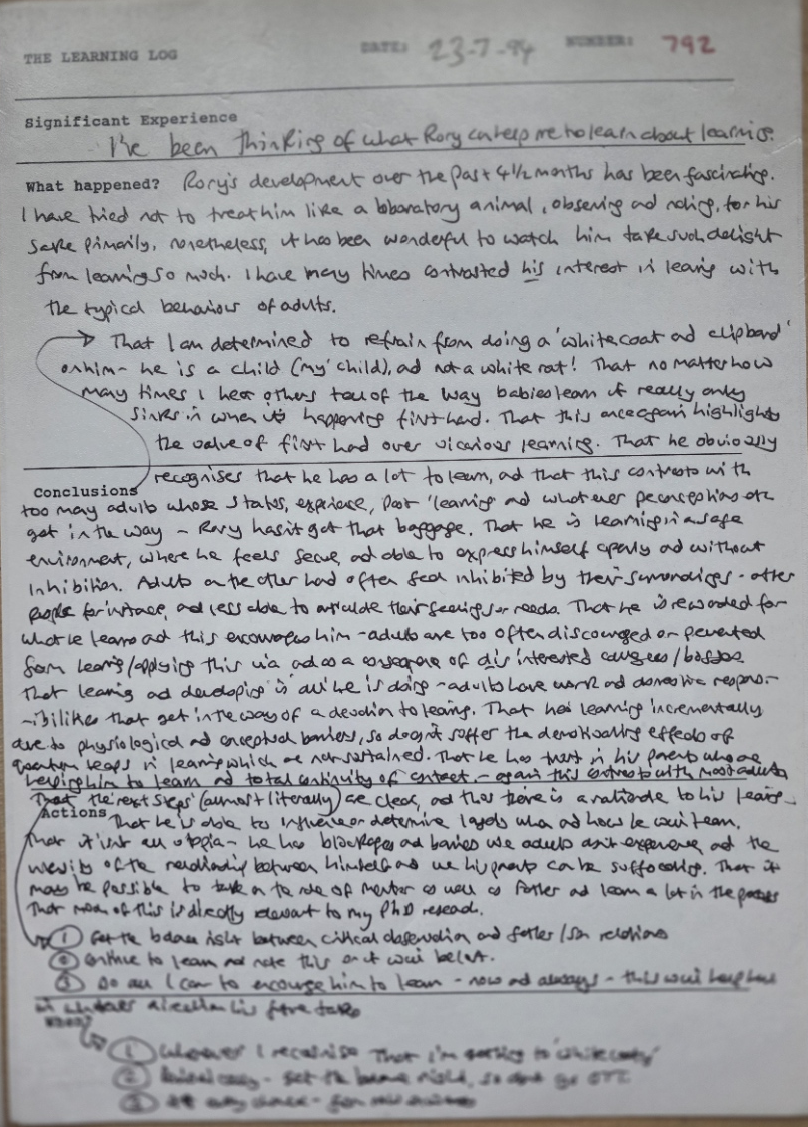 THE LEARNING LOG DATE: 23-7-94 NUMBER: 792
Significant Experience
I've been thinking of what Rory can help me to learn about learning.
What happened? Rory's development over the past 4½ months has been fascinating.
I have tried not to treat him like a laboratory animal, observing and noting, for his
sake primarily, nonetheless, it has been wonderful to watch him take such delight
from learning so much. I have many times contrasted his interest in learning with
the typical behaviour of adults.
That I am determined to refrain from doing a 'white coat and clipboard'
on him - he is a child (my child), and not a white rat! That no matter how
many times I hear others talk of the way babies learn it really only
sinks in when it's happening first hand. That this once again highlights
the value of first hand over vicarious learning. That he obviously
recognises that he has a lot to learn, and that this contrasts with
Conclusions
too many adults whose status, experience, past 'learning' and whatever preconceptions etc
get in the way - Rory hasn't got that baggage. That he is learning in a safe
environment, where he feels secure, and able to express himself openly and without
inhibition. Adults on the other hand often feel inhibited by their surroundings - other
people for instance, and less able to articulate their feelings or needs. That he is rewarded for
what he learns and this encourages him - adults are too often discouraged or prevented
from learning/applying this via and as a consequence of disinterested colleagues/bosses
That learning and developing is 'all' he is doing - adults have work and domestic respons-
-ibilities that get in the way of a devotion to learning. That he's learning incrementally
due to physiological and conceptual barriers, so doesn't suffer the demotivating effects of
quantum leaps in learning which are not sustained. That he has trust in his parents who are
helping him to learn and total continuity of contact - again this contrasts with most adults
That the 'next steps' (almost literally) are clear, and that there is a rationale to his learning.
Actions That he is able to influence or determine largely when and how he will learn.
That it isn't all utopia - he has blockages and barriers we adults don't experience, and the
intensity of the relationship between himself and we his parents can be suffocating. That it
must be possible to take on the role of Mentor as well as Father and learn a lot in the process
That much of this is directly relevant to my PhD research.
① Get the balance right between critical observation and father/son relations
② Continue to learn and note this as it will be lost.
③ Do all I can to encourage him to learn - now and always - this will help him
in whatever direction his future takes
When?
① Whenever I recognise that I'm starting to 'white coat'
② get the balance right, so don't go OTT
③ At every chance -